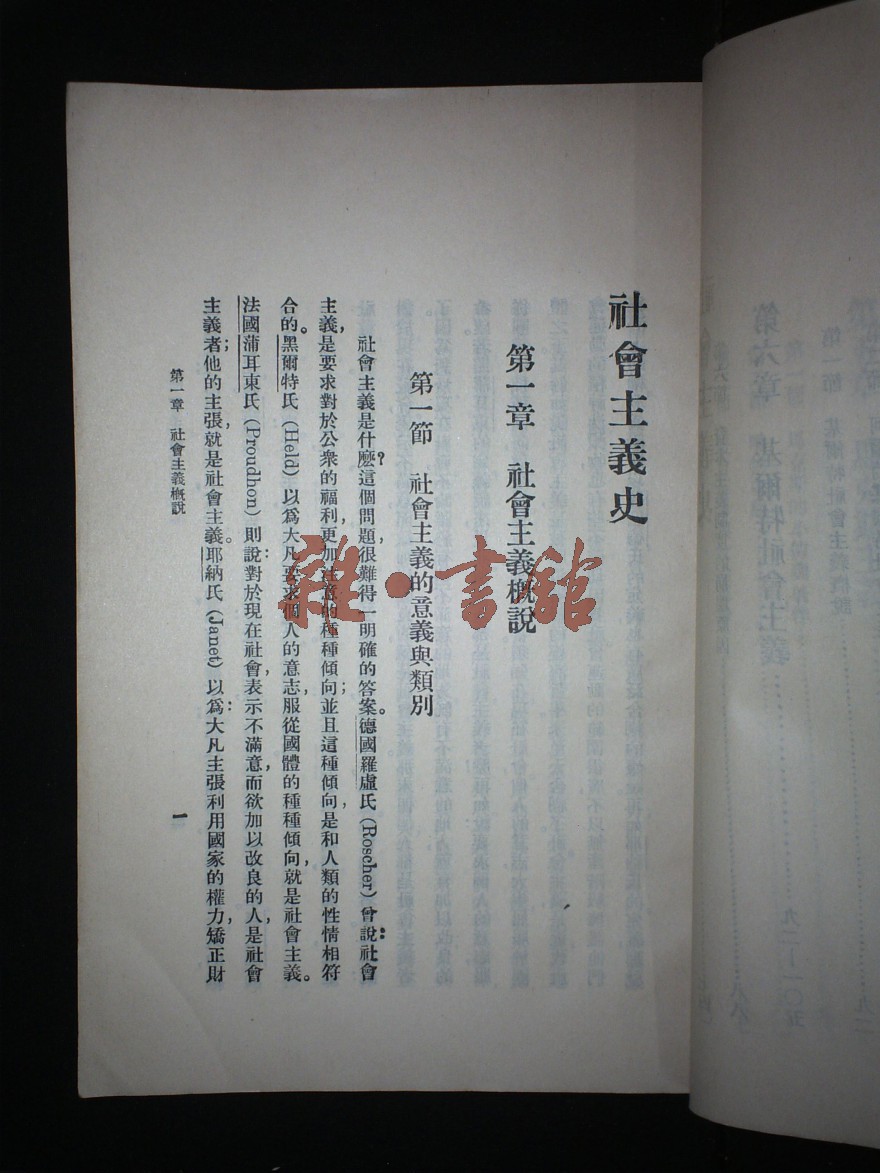 社會主義史
第一章　社會主義概說
第一節　社會主義的意義與類別
社會主義是什麽？這個問題，很難得一明確的答案。德國羅盧氏(Roscher)曾說：社會
主義，是要求對於公衆的福利，更加注意的種種傾向；並且這種傾向，是和人類的性情相符
合的。黑爾特氏(Held)以爲大凡要求個人的意志，服從國體的種種傾向，就是社會主義。
法國蒲耳東氏(Proudhon)則說：對於現在社會，表示不滿意，而欲加以改良的人，是社會
主義者；他的主張，就是社會主義。耶納氏(Janet)以爲：大凡主張利用國家的權力，矯正財
第一章　社會主義概說
一
雜·書舘
第六章　基爾特社會主義……九二—一〇五
第一節　基爾特社會主義概說……九二